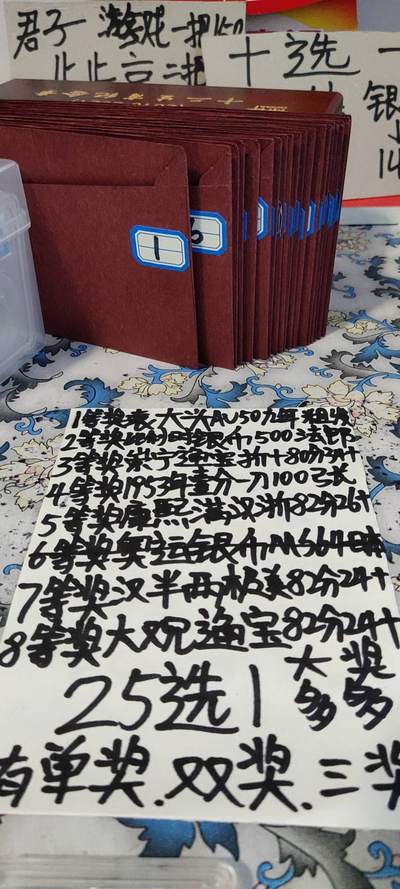 君子 游戏一把150
十选一
银
14
十二生肖纪念币
1
6
1等奖袁大头AU50九年
2等奖 银币500法郎
3等奖崇宁通宝折十80分
4等奖1953年壹分一刀100
5等奖康熙满汉浙82分26+
6等奖奥运银币MS64
7等奖汉半两极美82分24+
8等奖大观通宝82分24+
25选1
大奖
多多
有单奖.双奖.三奖